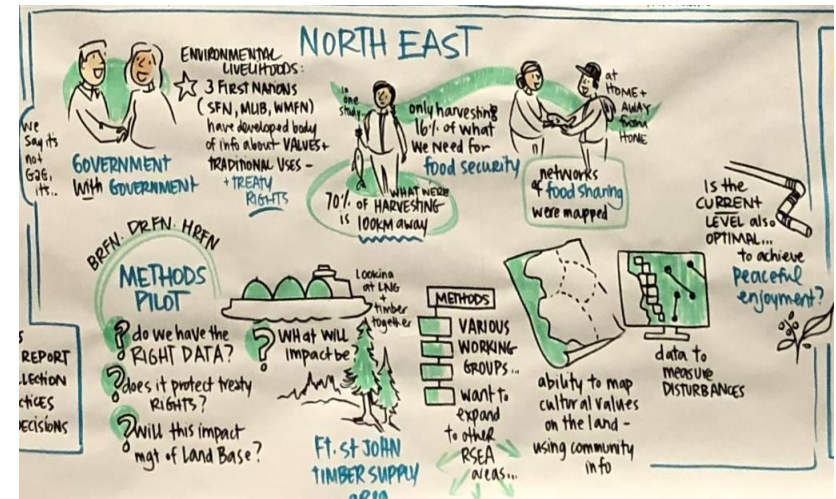 NORTH EAST
We
say its
not
G2G,
its..
GOVERNMENT
With GOVERNMENT
ENVIRONMENTAL
LIVELIHOODS:
3 FIRST NATIONS
(SFN, MLIB, WMFN)
have developed body
of info about VALUES+
TRADITIONAL USES -
+TREATY
RIGHTS
in
one
study
only harvesting
16% of what
we need for
food security
WHAT WERE
70% OF HARVESTING
is 100KM away
at
HOME +
AWAY
from
HOME
networks
of food sharing
were mapped
Is the
CURRENT
LEVEL also
OPTIMAL...
to achieve
Peaceful
enjoyment?
BRFN. DRFN. HRFN
METHODS
PILOT
? do we have the
RIGHT DATA?
? does it protect treaty
RIGHTS?
? will this impact
mgt of Land Base?
Looking
at LNG
+
timber
together
? WHAT WILL
impact be?
FT. St JOHN
TIMBER SUPPLY
area
METHODS
VARIOUS
WORKING
GROUPS...
want to
expand
to other
RSEA
areas...
ability to map
cultural values
on the land -
using community
info
data to
measure
DISTURBANCES
REPORT
ECISIONS